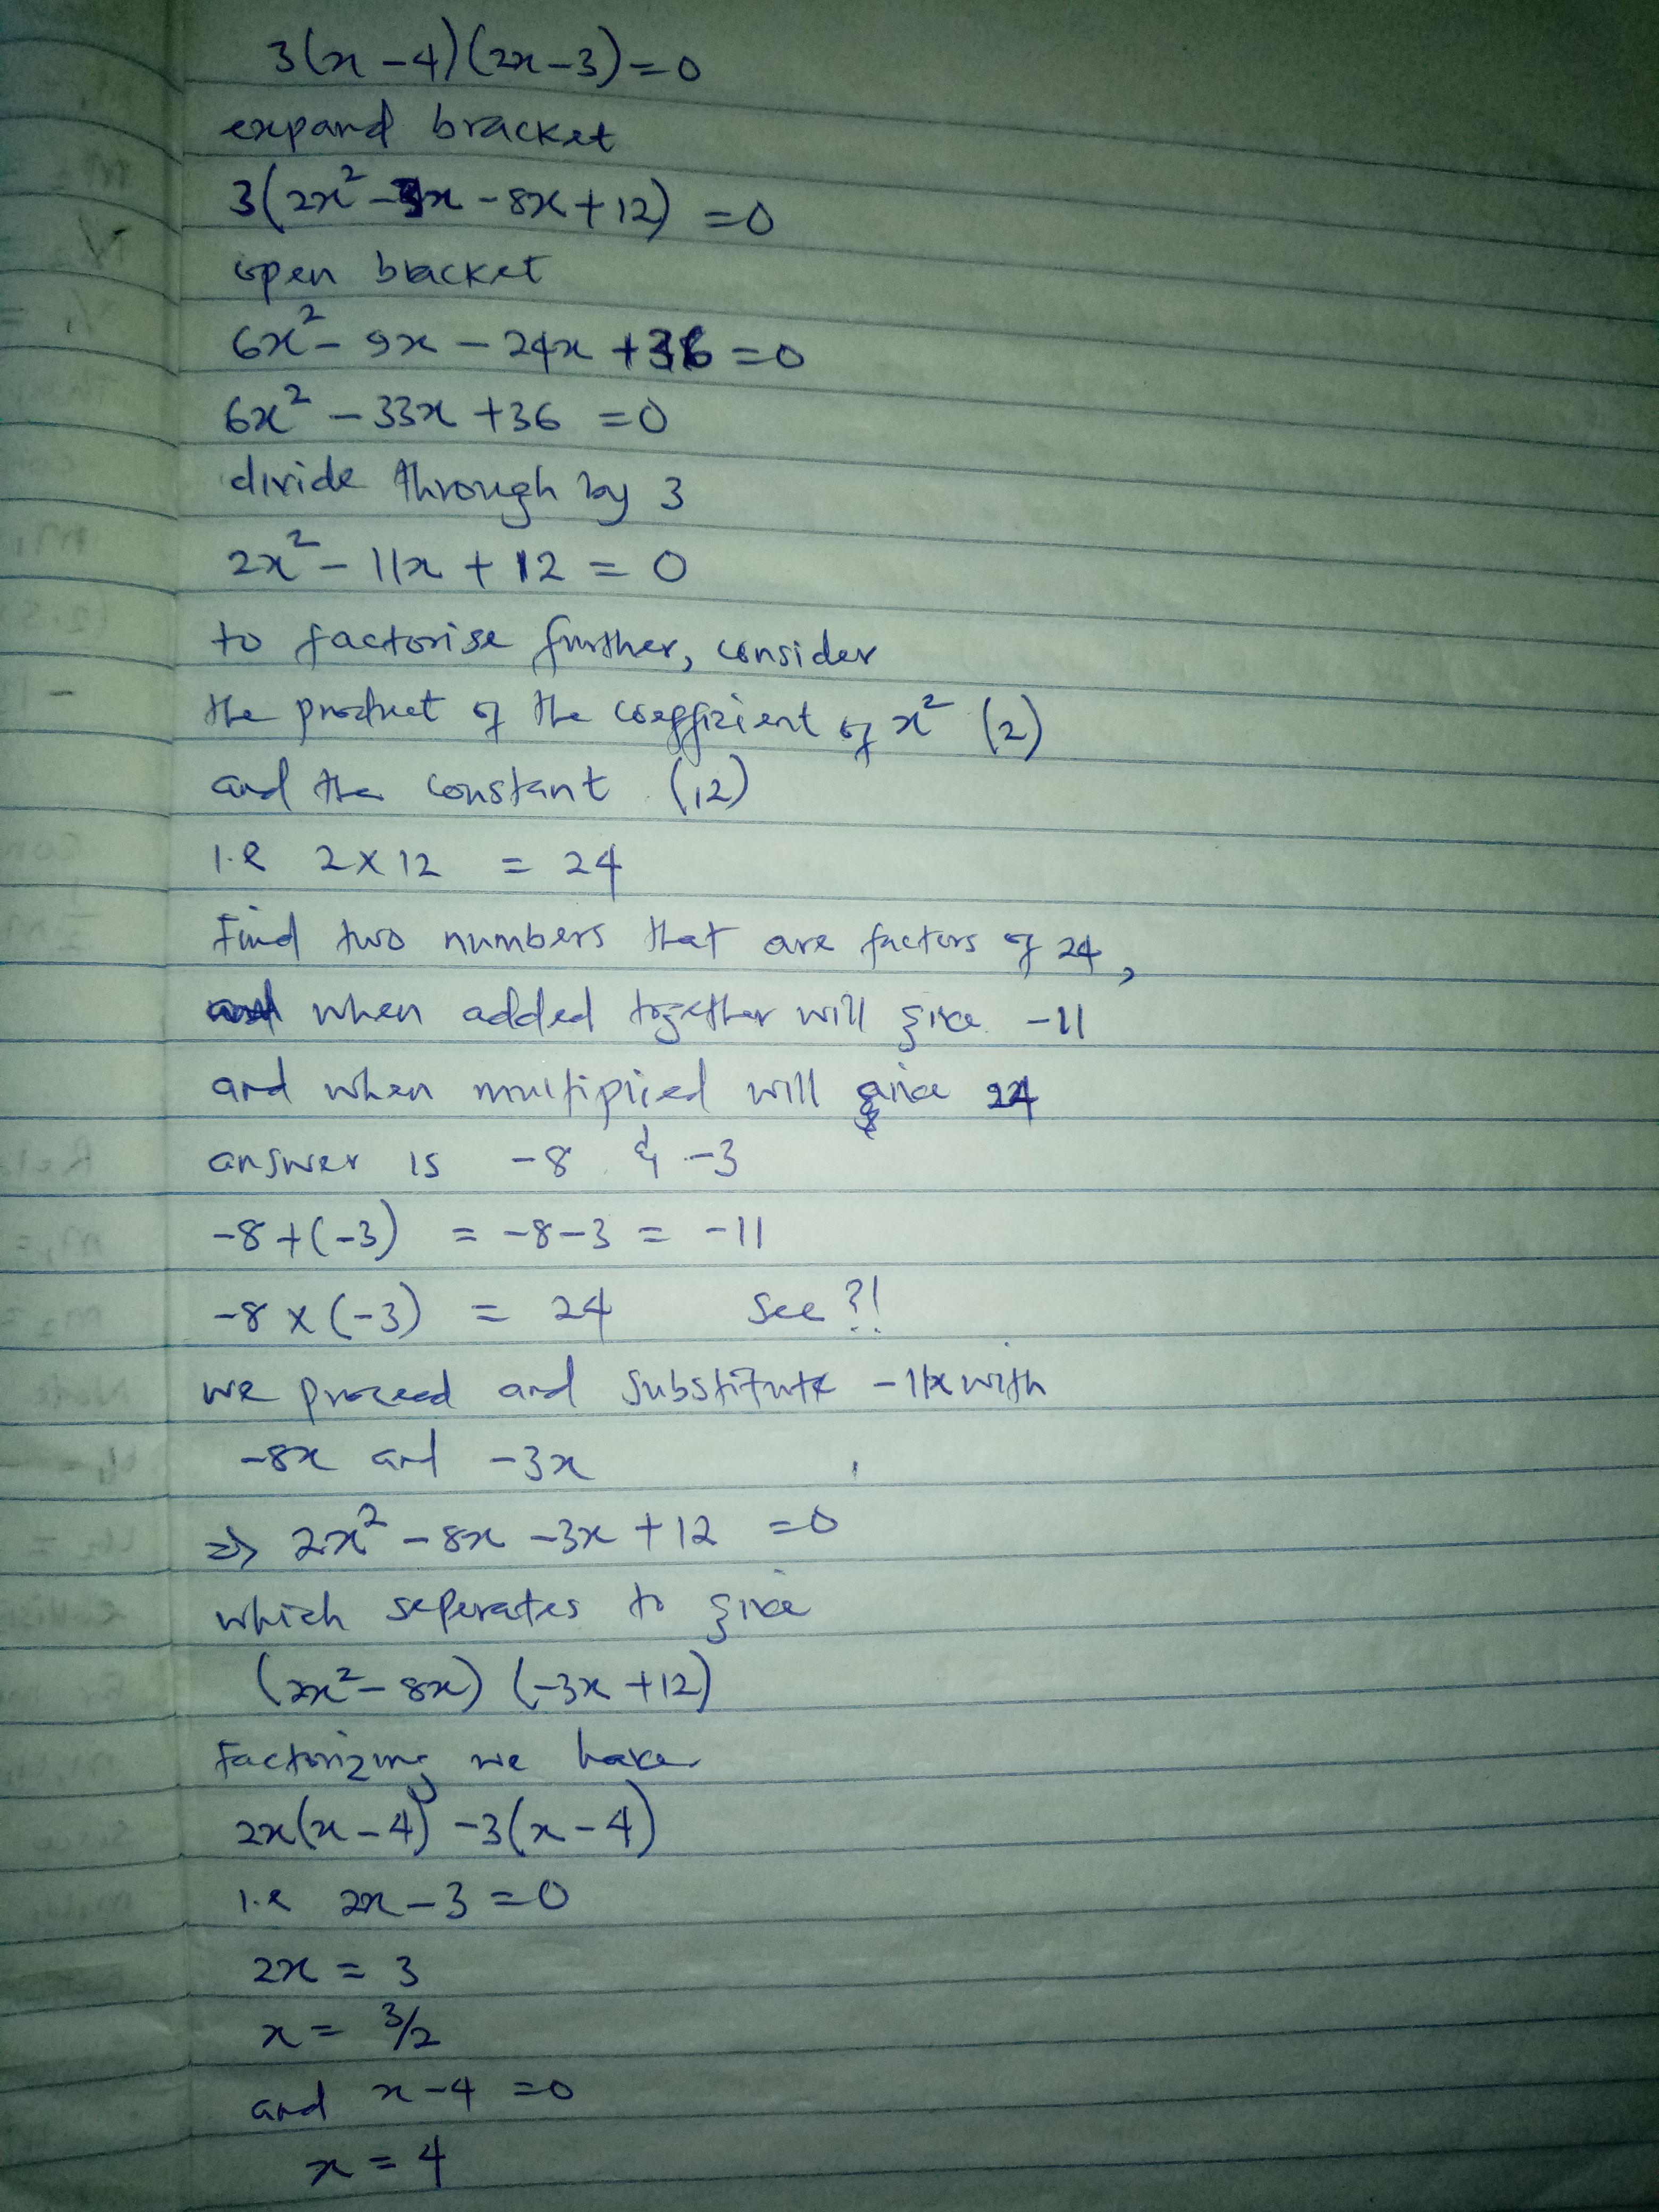 3(x-4)(2x-3)=0
expand bracket
3(2x²-3x-8x+12) =0
open bracket
6x²-9x-24x+36=0
6x²-33x+36 =0
divide through by 3
2x²-11x+12=0
to factorise further, consider
the product of the coefficient of x² (2)
and the constant (12)
i.e 2x12 = 24
Find two numbers that are factors of 24,
when added together will give -11
and when multiplied will give 24
answer is -8 & -3
-8+(-3) = -8-3 = -11
-8x(-3) = 24 See?!
we proceed and substitute -11x with
-8x and -3x
⇒ 2x²-8x-3x+12 =0
which seperates to give
(2x²-8x)(-3x+12)
Factorizing we have
2x(x-4)-3(x-4)
i.e 2x-3=0
2x=3
x=3/2
and x-4=0
x=4